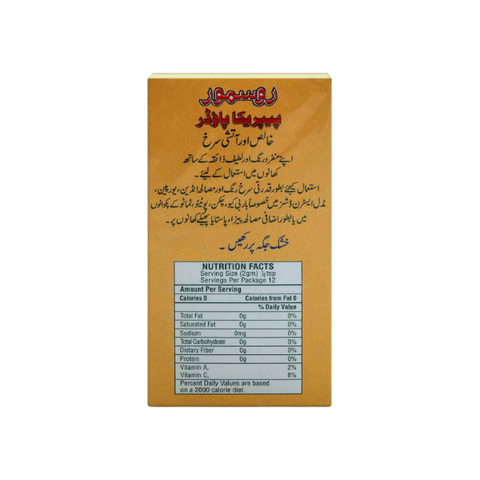 روسمور
پیپریکا پاؤڈر
خالص اور آتشی سرخ
اپنے منفرد رنگ اور لطیف ذائقہ کے ساتھ
کھانوں میں استعمال کے لیئے۔
استعمال کیجئے بطور قدرتی سرخ رنگ اور مصالحہ انڈین، یورپین،
مڈل ایسٹرن ڈشز میں خصوصاً باربی کیو، چکن، پوٹیٹو، ٹماٹو کے پکوانوں
میں یا بطور اضافی مصالحہ پیزا، پاستا یا پھیکے کھانوں پر۔
خشک جگہ پر رکھیں۔
NUTRITION FACTS
Serving Size (2gm) ¼ tsp
Servings Per Package 12
Amount Per Serving
Calories 0 Calories from Fat 0
% Daily Value
Total Fat 0g 0%
Saturated Fat 0g 0%
Sodium 0mg 0%
Total Carbohydrate 0g 0%
Dietary Fiber 0g 0%
Protein 0g 0%
Vitamin A, 2%
Vitamin C, 8%
Percent Daily Values are based
on a 2000 calorie diet.